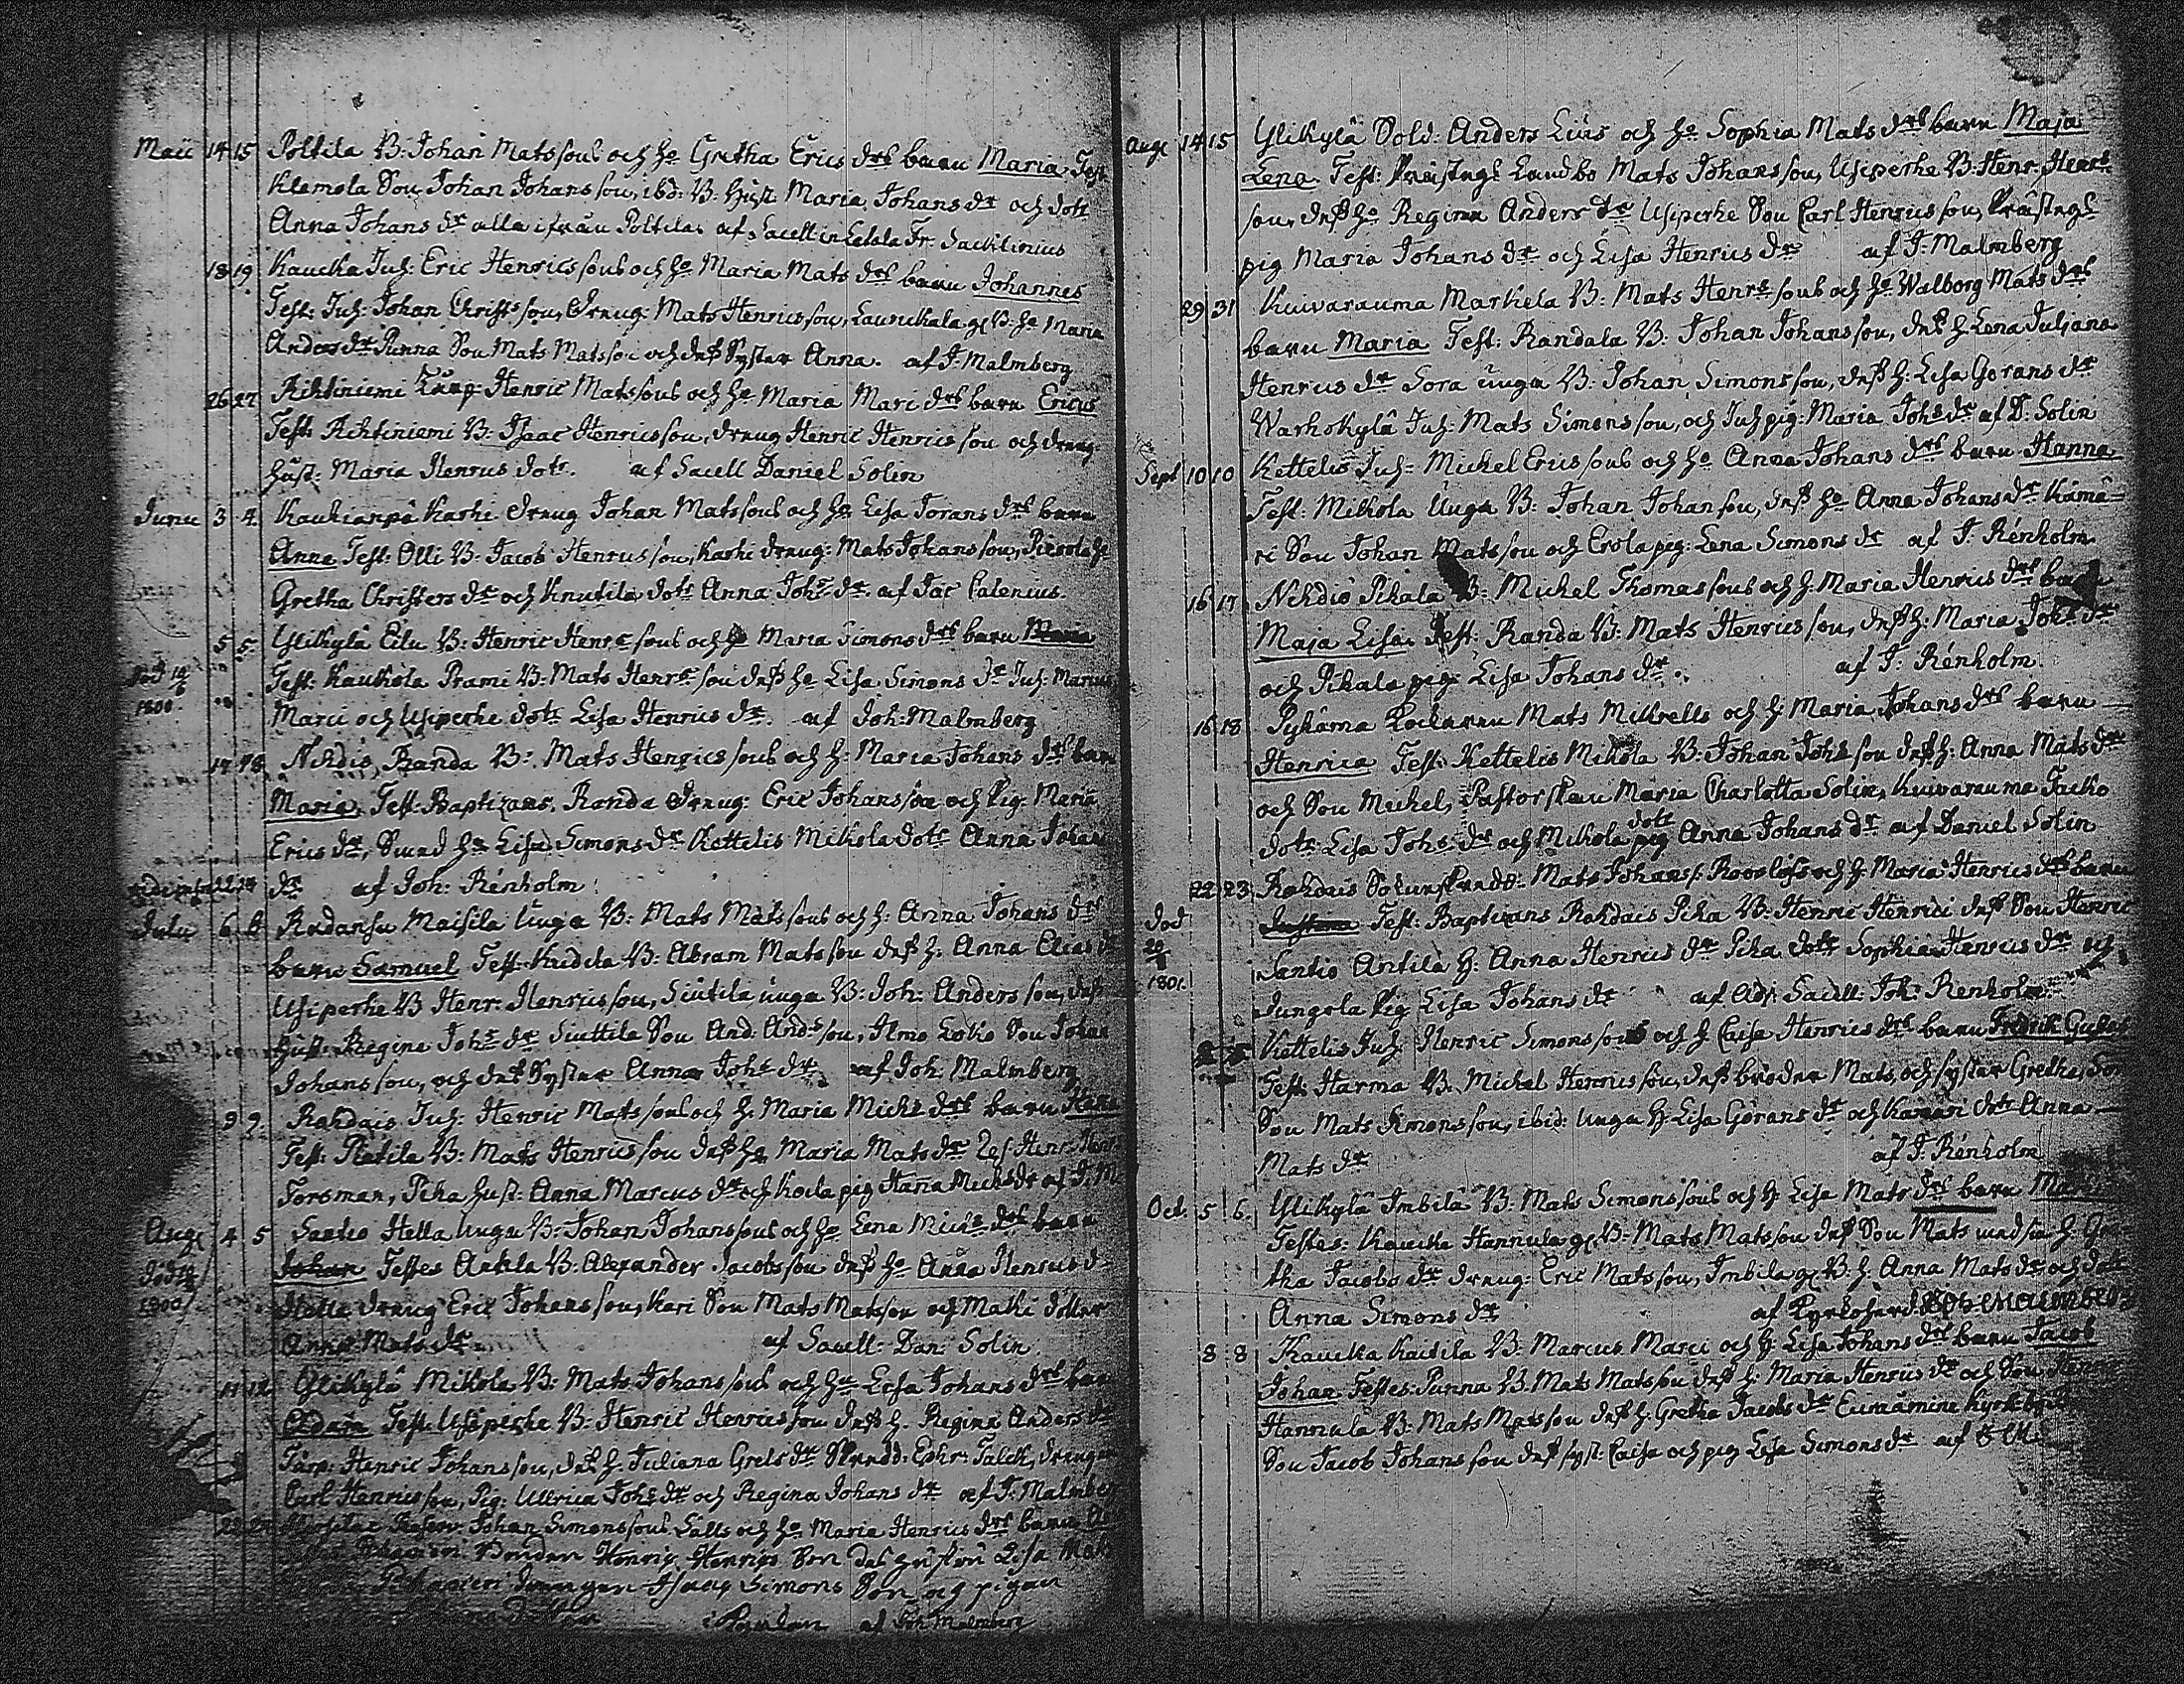 Maii 14 15 Poltila B: Johan Matssons och H: Gretha Erics drs barn Maria Test:
Klemola Son Johan Johansson, ibd: B: Hust: Maria Johans dr och dott
Anna Johans dr alla ifrån Poltila af Sacell in Letala Fr: Sacklinius
18 19 Kaucka Inh: Eric Henricssons och H: Maria Mats drs barn Johannes
Test: Inh: Johan Christs son, dräng: Mats Henricsson, Laurickala gl B: H: Maria
Anders dr Punna Son Mats Matsson och dess Syster Anna. af J: Malmberg
26 27 Rihtiniemi Henric Matssons och H: Maria Marc drs barn Ericus
Test: Rihtiniemi B: Isaac Henricsson, dräng Henric Henricsson och dräng
Hust: Maria Henrics dotr. af Sacell Daniel Solin
Junii 3 4 Kaukianpä Karhi dräng Johan Matssons och H: Lisa Jorans drs barn
Anna Test: Olli B: Jacob Henricsson, Karhi dräng: Mats Johansson,
Gretha Christers dr och Knutila dotr Anna Johs dr. af Jac Calenius.
5 5 Ylikylä Eilu B: Henric Henrcs sons och H: Maria Simons drs barn Maria
Död 1800 Test: Kaukola Prami B: Mats Henrcs son dess H: Lisa Simons dr Inh: Marcus
Marci och Usiperhe dotr Lisa Henrics dr. af Joh: Malmberg
17 18 Nihdiö Randa B: Mats Henricssons och H: Maria Johans drs barn
Maria, Test: Baptizans, Randa dräng: Eric Johansson och Pig: Maria
Erics dr, Sund H: Lisa Simons dr Kettelis Mikola dotr Anna Johans
dr af Joh: Rénholm
Julii 6 8 Radansu Maisila Unga B: Mats Matssons och H: Anna Johans drs
barn Samuel Test: Kudila B: Abram Matsson dess H: Anna Elias dr
Usiperhe B Henr: Henricsson, Siutila unga B: Joh: Andersson, dess
Hust: Regina Johs dr Siuttila Son And: Ands son, Ilmo Eoko Son Johan
Johansson, och dess Syster Anna Johs dr af Joh: Malmberg
9 9 Rohdais Inh: Henric Matssons och H: Maria Michs drs barn
Test: Platila B: Mats Henricsson dess H: Maria Mats dr
Forsman, Pika Hust: Anna Marcus dr och Kocla pig Hana Michs dr af J: M
Aug 4 5 Santio Hella Unga B: Johan Johanssons och H: Lena Michs drs barn
Död 1800 Johan Testes Antila B: Alexander Jacobsson dess H: Anna Henrics d
Hella dräng Eric Johansson, Kari Son Mats Matsson och Maihi dotter
Anna Mats dr af Sacell: Dan: Solin
11 12 Ylikylä Mikola B: Mats Johanssons och Hu Lisa Johans drs bar
Adam Test: Usiperhe B: Henric Henricsson dess H: Regina Anders dr
Torp: Henric Johansson, dess H: Juliana Grels dr Skrädd: Ephr: Falck, drängar
Carl Henricsson, Pig: Ullrica Johs dr och Regina Johans dr af J: Malmberg
Johan Simonssons Salts och H: Maria Henrics drs barn
Bonden Henric Henrics Son dess hustru Lisa Mats
drängen Isaac Simons Son, och pigan
af Joh Malmberg
Aug 14 15 Ylikylä Sold: Anders Lius och H: Sophia Mats drs barn Maja
Lena Test: Prästegs Landbo Mats Johansson, Usiperhe B: Henr: Henrcs
son, dess H: Regina Anders dr Usiperhe Son Carl Henricsson, Prästegs
pig Maria Johans dr och Lisa Henrics dr af J: Malmberg
29 31 Kuivarauma Markela B: Mats Henrcs sons och H: Walborg Mats drs
barn Maria Test: Randala B: Johan Johansson, dess H Lena Juliana
Henrics dr Sora unga B: Johan Simonsson, dess H: Lisa Görans dr
Warhokylä Inh: Mats Simonsson, och Inh pig: Maria Johs dr af D: Solin
Sept 10 10 Kettelis Inh: Michel Ericssons och H: Anna Johans drs barn Hanna
Test: Mikola Unga B: Johan Johansson, dess H: Anna Johans dr Kämä-
ri Son Johan Matsson och Erola pig: Lena Simons dr af J: Rénholm
16 17 Nihdiö Pikala B: Michel Thomassons och H: Maria Henrics drs barn
Maja Lisa. Test: Randa B: Mats Henricsson, dess H: Maria Johs dr
och Pikala pig: Lisa Johans dr. af J: Rénholm
16 18 Pyhärna Rockaren Mats Mikrells och H: Maria Johans drs barn
Henrica Test: Kettelis Mikola B: Johan Johs son dess H: Anna Mats dr
och Son Michel, Pastorskan Maria Charlotta Solin, Kuivarauma Jacko
dotr: Lisa Johs dr och Mikola dotr pig Anna Johans dr af Daniel Solin
22 23 Rohdais Mats Johanss: Rooslöfs och H: Maria Henrics drs barn
Död 1801 Test: Baptizans Rohdais Pika B: Henric Henrici dess Son Henric
Santio Antila H: Anna Henrics dr Pika dotr Sophia Henrics dr och
Jungola Pig Lisa Johans dr af Adj: Sacell: Joh: Renholm
Kettelis Inh: Henric Simonssons och H: Caisa Henrics drs barn Fredrik Gustaf
Test: Harma B: Michel Henricsson, dess broder Mats, och syster Gretha,
Son Mats Simonsson, ibid: Unga H: Lisa Görans dr och Kämäri dotr Anna
Mats dr af J: Rénholm
Oct. 5 6 Ylikylä Imbilä B: Mats Simonssons och H: Lisa Mats drs barn
Testes: Kaucka Hannula gl B: Mats Matsson dess Son Mats med sin H: Gre-
tha Jacobs dr dräng: Eric Matsson, Imbila gl B: H: Anna Mats dr och dott
Anna Simons dr af Kyrkoherd: Joh Malmberg
8 8 Kaucka Kaitila B: Marcus Marci och H: Lisa Johans drs barn Jacob
Johan Testes: Punna B: Mats Matsson dess H: Maria Henrics dr och Son
Hannula B: Mats Matsson dess H: Gretha Jacobs dr
Son Jacob Johansson dess syst: Caisa och pig Lisa Simons dr af